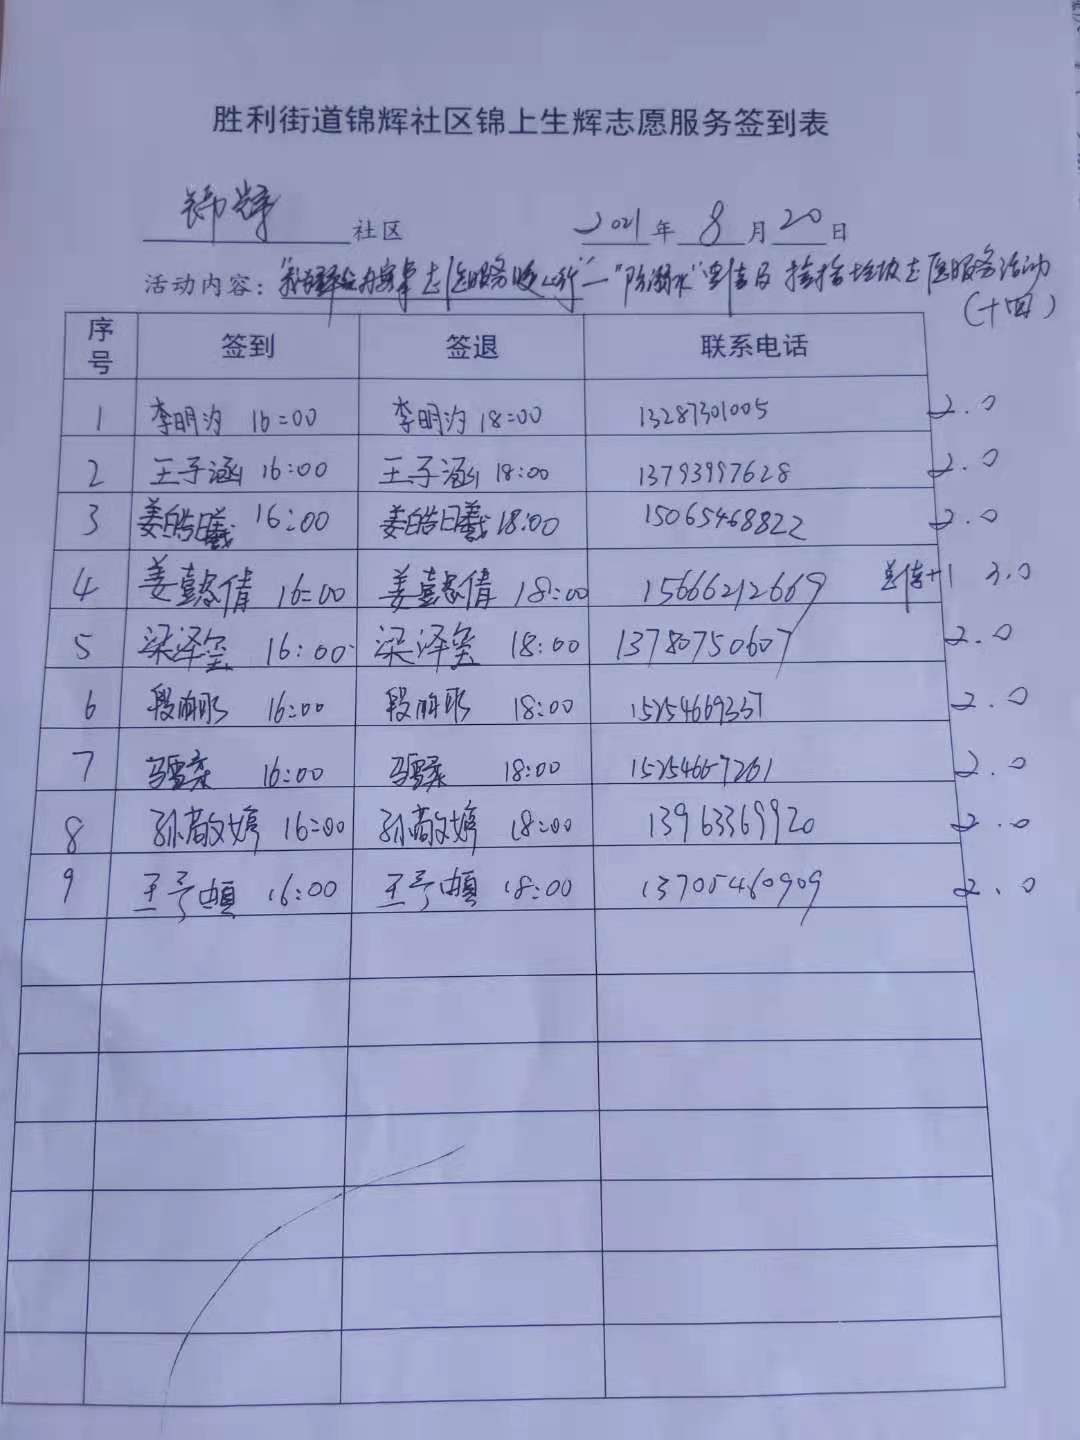 胜利街道锦辉社区锦上生辉志愿服务签到表
锦辉 社区 2021 年 8 月 20 日
活动内容: 志愿服务 一"防溺水"宣传及 捡拾垃圾志愿服务活动
(十四)
序号 签到 签退 联系电话
1 李明汐 16:00 李明汐 18:00 13287301005 2.0
2 王子涵 16:00 王子涵 18:00 13793997628 2.0
3 姜皓曦 16:00 姜皓曦 18:00 15065468822 2.0
4 姜懿倩 16:00 姜懿倩 18:00 15666212669 宣传+1 3.0
5 梁泽玺 16:00 梁泽玺 18:00 13780750607 2.0
6 段 16:00 段 18:00 15254669337 2.0
7 16:00 18:00 15254667261 2.0
8 孙敬婷 16:00 孙敬婷 18:00 13963369920 2.0
9 王予 16:00 王予 18:00 13705460909 2.0